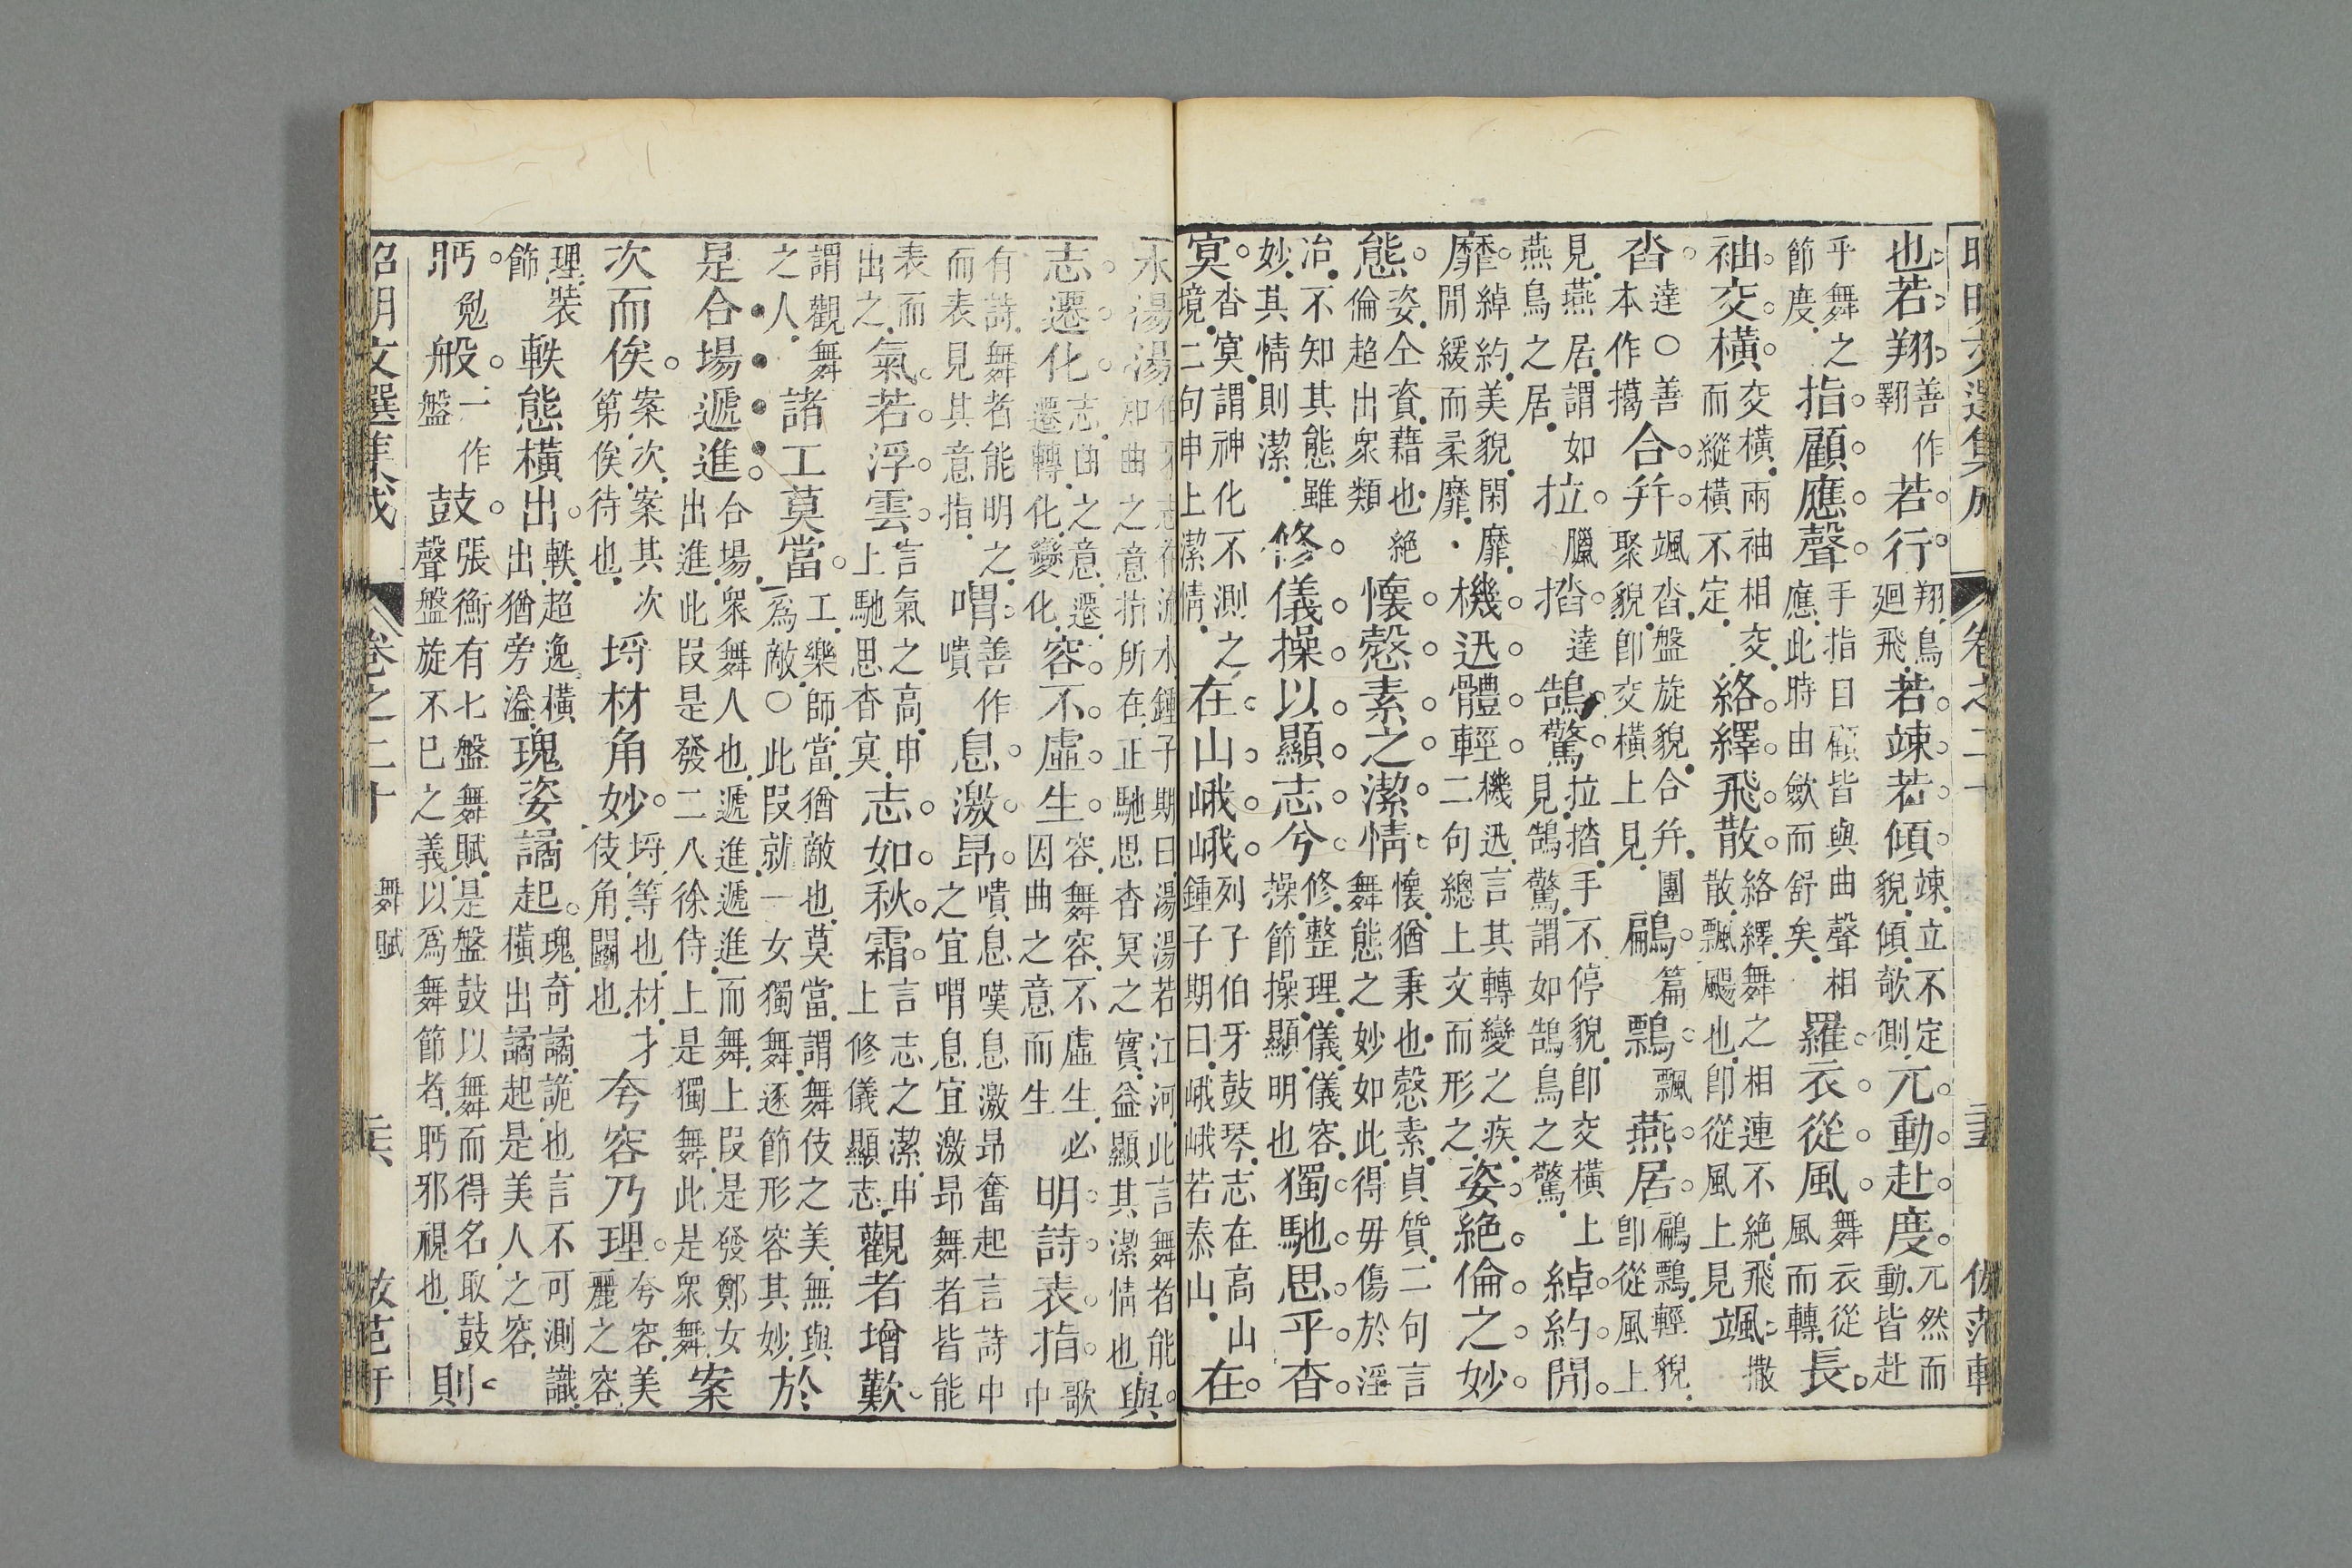 明文選集成 卷之二十
也若翔善作翺若行翔鳥廻飛若竦若傾竦立不定貌傾欹側兀動赴度兀然而動皆赴
乎舞之節度指顧應聲手指目顧皆與曲聲相應此時由斂而舒矣羅衣從風舞衣從風而轉長
袖交橫交橫兩袖相交而縱橫不定絡繹飛散絡繹舞之相連不絕飛散飄颺也卽從風上見颯撒
沓達○善本作㩉合幷颯沓盤旋貌合幷團聚貌卽交橫上見鶣篇鷅飄燕居鶣鷅輕貌卽從風上
見燕居謂如燕鳥之居拉臘㧺達鵠驚拉㧺手不停貌卽交橫上見鵠驚謂如鵠鳥之驚綽約閒
靡綽約美貌閑靡閒緩而柔靡機迅體輕機迅言其轉變之疾二句總上文而形之姿絕倫之妙
態姿仝資藉也絕倫超出衆類懷慤素之潔情懷猶秉也慤素貞質二句言舞態之妙如此得毋傷於淫
冶不知其態雖妙其情則潔修儀操以顯志兮修整理儀儀容操節操顯明也獨馳思乎杳
冥杳冥謂神化不測之境二句申上潔情在山峨峨列子伯牙鼓琴志在高山鍾子期曰峨峨若泰山在
水湯湯伯牙志在流水鍾子期曰湯湯若江河此言舞者能卽曲之意指所在正馳思杳冥之實益顯其潔情也與
志遷化志曲之意遷遷轉化變化容不虛生容舞容不虛生必因曲之意而生明詩表指歌中
有詩舞者能明之而表見其意指喟善作嘳息激昂嘳息嘆息激昂奮起言詩中之宜喟息宜激昂舞者皆能
表而出之氣若浮雲言氣之高申上馳思杳冥志如秋霜言志之潔申上修儀顯志觀者增歎
謂觀舞之人諸工莫當工樂師當猶敵也莫當謂舞伎之美無與爲敵○此段就一女獨舞逐節形容其妙於
是合場遞進合場衆舞人也遞進遞進而舞上段是發鄭女出進此段是發二八徐侍上是獨舞此是衆舞案
次而俟案次案其次第俟待也埒材角妙埒等也材才伎角鬭也夸容乃理夸容美麗之容
理裝飾軼態橫出軼超逸橫出猶旁溢瑰姿譎起瑰奇譎詭也言不可測識橫出譎起是美人之容
眄勉般一作盤鼓張衡有七盤舞賦是盤鼓以舞而得名取鼓聲盤旋不已之義以爲舞節者眄邪視也則
昭明文選集成 卷之二十 舞賦